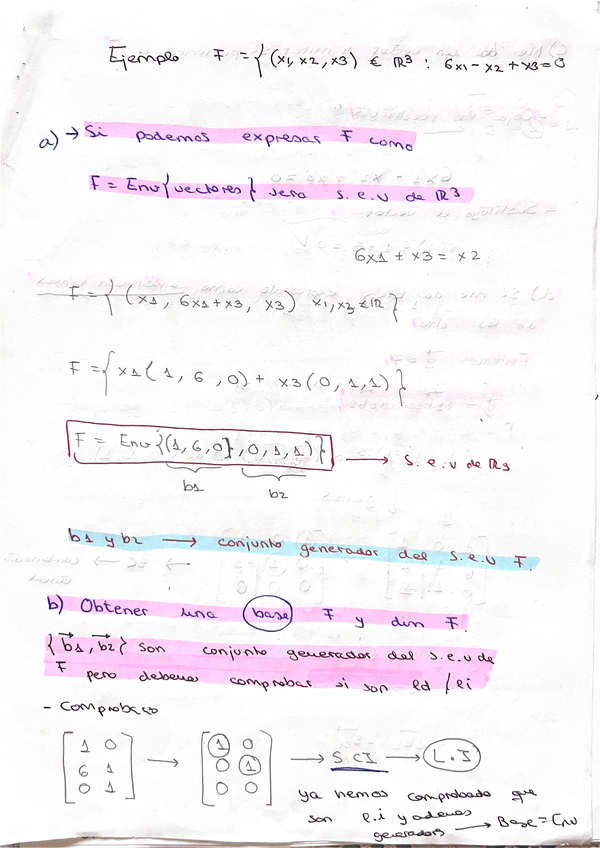 Ejemplo F = { (x1, x2, x3) € IR³ : 6x1 - x2 + x3 = 0
a) → Si podemos expresar F como
F = Env{vectores} sera s.e.v de IR³
6x1 + x3 = x2
F = { (x1, 6x1+x3, x3) x1, x3 € IR }
F = { x1(1, 6, 0) + x3(0,1,1) }
F = Env{(1,6,0},0,1,1)} → s.e.v de IR3
b1 b2
b1 y b2 → conjunto generador del s.e.v F.
b) Obtener una base F y dim F.
{b1, b2} son conjunto generador del s.e.v de
F pero debemos comprobar si son ld / li
- Comprobaco
1 0 → 1 0 → S.CI → L.I
6 1 0 1
0 1 0 0
ya hemos comprobado que
son l.i y ademas
generadors → Base = Env